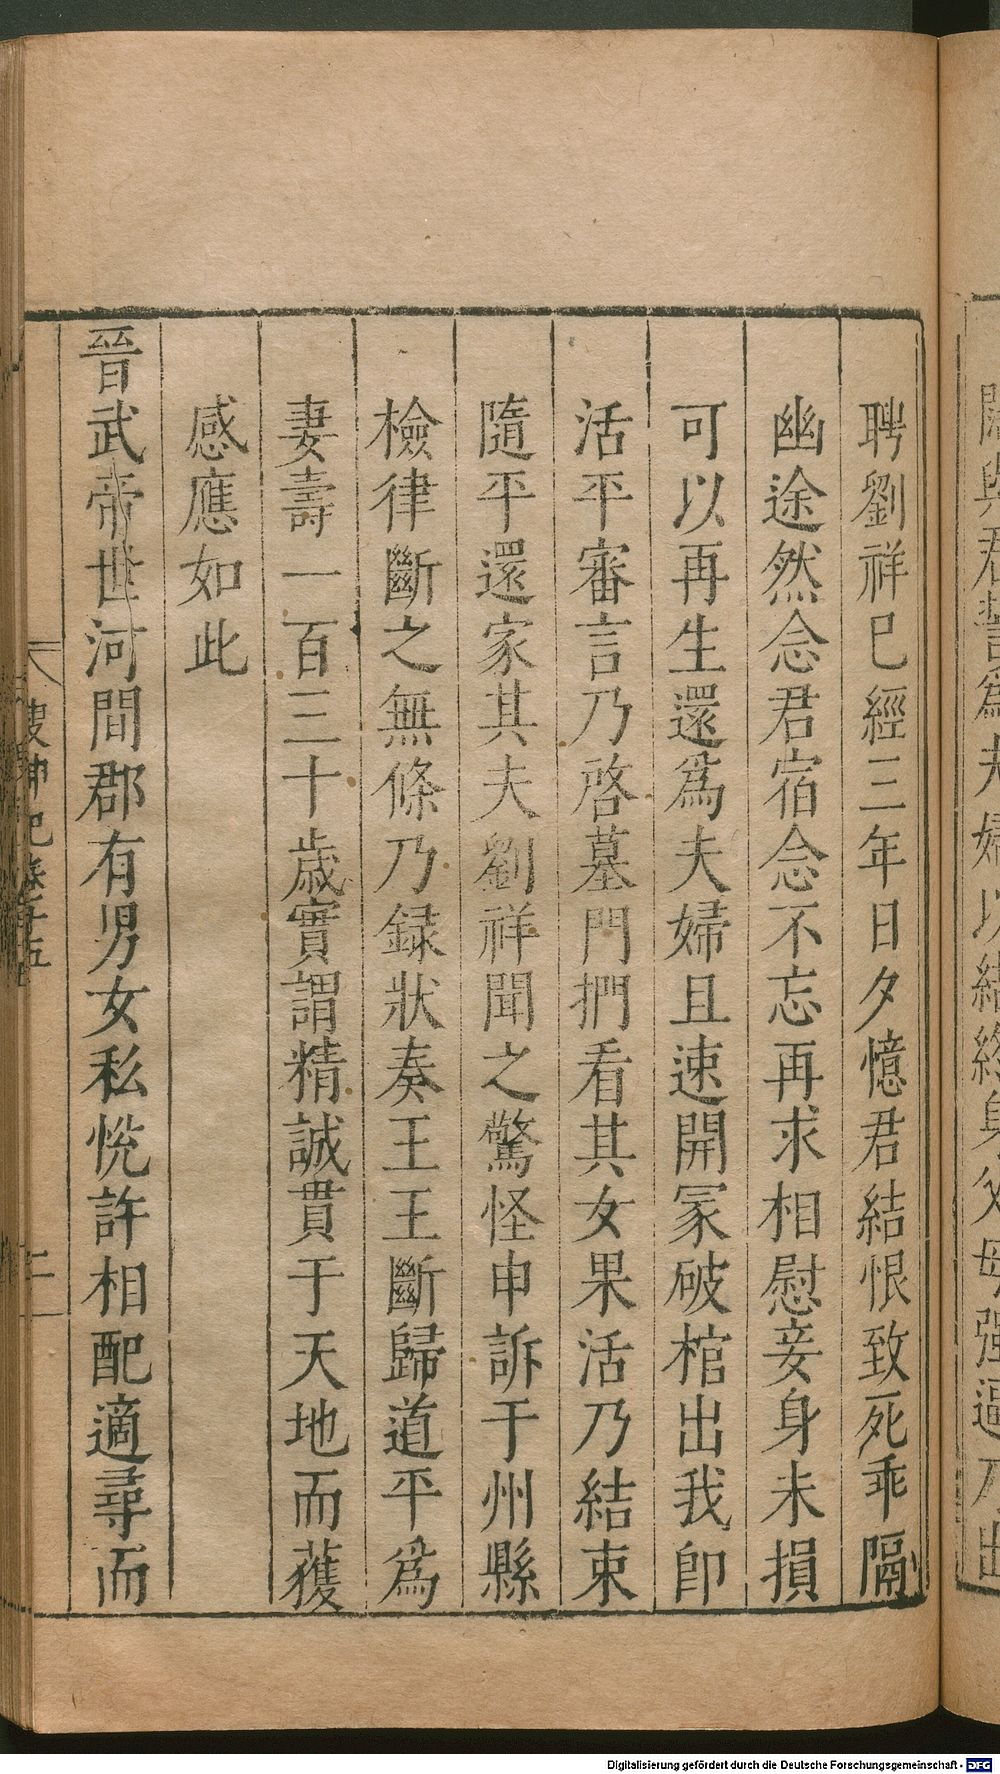 聘劉祥已經三年日夕憶君結恨致死乖隔
幽途然念君宿念不忘再求相慰妾身未損
可以再生還爲夫婦且速開冢破棺出我卽
活平審言乃啓墓門捫看其女果活乃結束
隨平還家其夫劉祥聞之驚怪申訴于州縣
檢律斷之無條乃録狀奏王王斷歸道平爲
妻壽一百三十歲實謂精誠貫于天地而獲
感應如此
晉武帝世河間郡有男女私悅許相配適尋而
搜神記卷十五
二
Digitalisierung gefördert durch die Deutsche Forschungsgemeinschaft - DFG